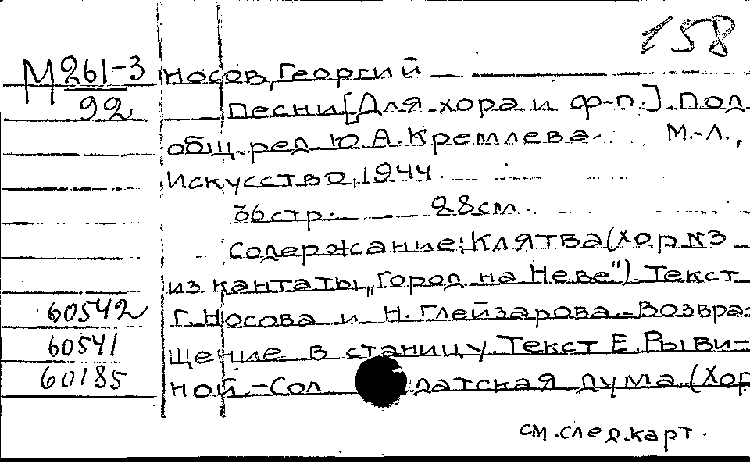 158
М 261-3 Носов, Георгий
92 Песни [Для хора и ф-п.]. Под
общ. ред. Ю.А. Кремлева. М.-Л.,
Искусство, 1944.
36 стр. 28 см.
Содержание: Клятва (хор №3
из кантаты „Город на Неве"). Текст
60542 Г. Носова и Н. Глейзарова.-Возвра-
60541 щение в станицу. Текст Е. Рыви-
60185 ной.-Сол датская дума (Хор
см. след. карт.